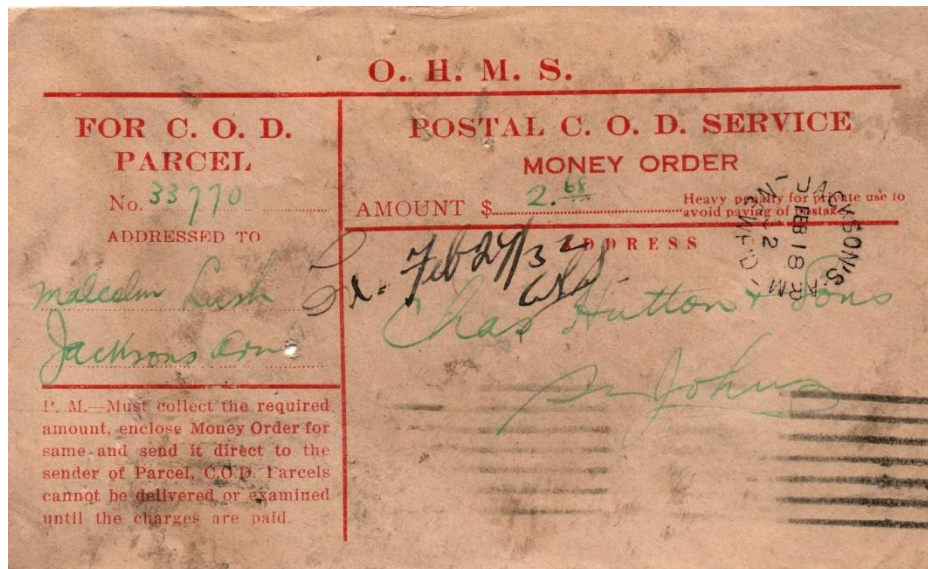 O. H. M. S.
FOR C. O. D.
PARCEL
No. 33770
ADDRESSED TO
Malcolm Lush
Jacksons Arm
P. M.—Must collect the required
amount, enclose Money Order for
same and send it direct to the
sender of Parcel, C.O.D. Parcels
cannot be delivered or examined
until the charges are paid.
POSTAL C. O. D. SERVICE
MONEY ORDER
AMOUNT $ 2.68
Heavy penalty for private use to
avoid paying of Postage
ADDRESS
Feb 27/32
Chas Hutton & Sons
St Johns
JACKSON'S
FEB 18